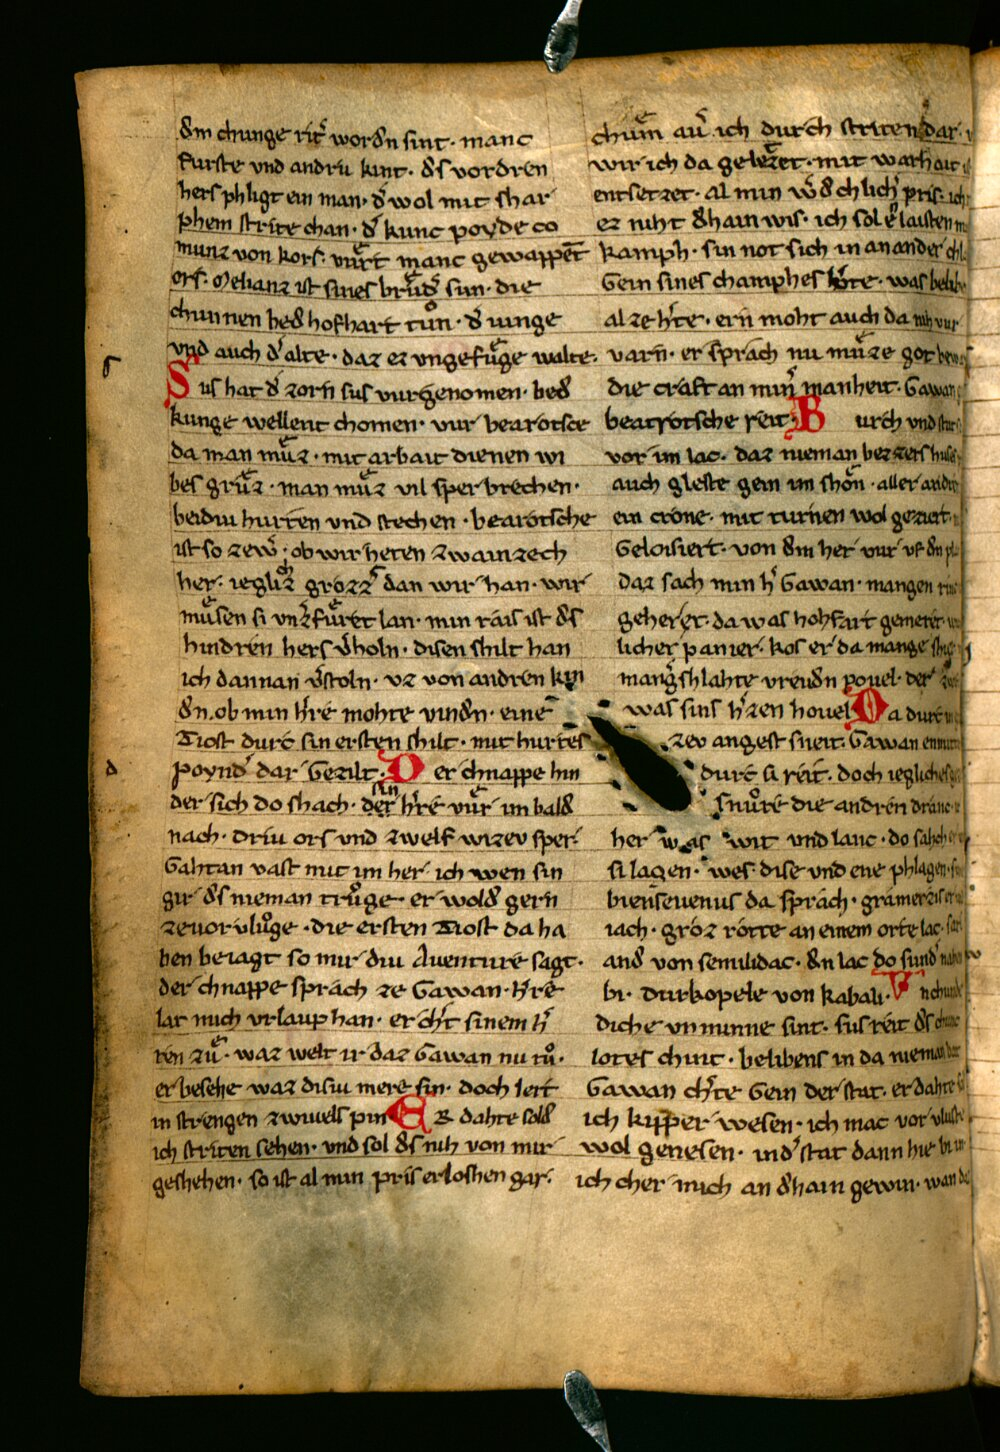 ðm chunge rit̄ worðn sint · manc
furste vnd andriu kint · ðs vordren
hers phligt ein man · d̾ wol mit shar
phem strite chan · d̾ kunc poyde co
munz von kors · vuͤrt manc gewappēt
ors · Melianz ist sines bruͦd̾ sun · die
chunnen beð hofhart tuͦn · d̾ iunge
vnd auch d̾ alte · daz ez vngefuͤge walte ·
Sus hat d̾ zorn sus vurgenomen · beð
kunge wellent chomen · vur bearotsce
da man muͤz · mit arbait dienen wi
bes gruͤz · man muͤz vil sper brechen ·
beidiu hurten vnd stechen · bearotsche
ist so zew̾ · ob wir heten zwainzech
her · iegliz grozz̾ dan wir han · wir
muͤsen si vnz̾fuͤret lan · min rais ist ðs
hindren hers v̾holn · disen shilt han
ich dannan v̾stoln · vz von andren kin
ðn · ob min h̾re mohte vinðn · eine
Tiost durc sin ersten shilt · mit hurtes
poynd̾ dar Gezilt · Der chnappe hin
der sich do shach · der sin h̾re vuͤr im balð
nach · driu ors vnd zwelf wizev sper ·
Gahtan vast mit im her · ich wen sin
gir ðs nieman truͦge · er wolð gern
zevorvluͦge · die ersten Tiost da ha
ben beiagt so mir diu Aventure sagt ·
der chnappe sprach ze Gawan · h̾re
lat mich vrlaup han · er ch̾t sinem h̾
ren zuͤ · waz welt ir daz Gawan nu tuͦ ·
er besehe waz disiu mere sin · doch lert
in strengen zwiuels pin ER dahte solð
ich striten sehen · vnd sol ðs niht von mir
geshehen · so ist al min pris erloshen gar ·
chuͤm av̾ ich durch striten dar ·
wir ich da geletzet · mit warhait
entsetzet · al min w̾ðchlich̾ pris · ich
ez niht ðhain wis · ich sol e laisten
kamph · sin not sich in anander
Gein sines champhes h̾te · was belibe
al ze h̾te · ern moht auch da niht vur
varn · er sprach nu muͤze got
die craft an min̾ manheit · Gawan
bearotsche reit · Burch vnd stat
vor im lac · daz nieman bezzers
auch gleste gein im shoͤn · aller
ein crone · mit turnen wol geziert ·
Geloisiert · von ðm her vur vf ðn
daz sach min h̾ Gawan · mangen
geherer · da was hohfart gemeret
licher panier · kos er da mange
mang̾shlahte vreuðn povel · der
was sins h̾zen hovel Da durc
zev angest sneit · Gawan
durc si reit · doch iegliches
snuͦre die andren dranc ·
her was wit vnd lanc · do sah er
si lagen · wes dise vnd ene phlagen ·
bien sevenus da sprach · gramerzis
iach · groz rotte an einem orte lac ·
anð von semilidac · ðn lac do sund̾
bi · durkopele von kabali · Vnchunde
diche vn minne sint · sus reit ðs
lotes chint · belibens in da nieman
Gawan ch̾te Gein der stat · er dahte
ich kipper wesen · ich mac vor
wol genesen · ind̾ stat dann hie
ich cher mich an ðhain gewin · wan